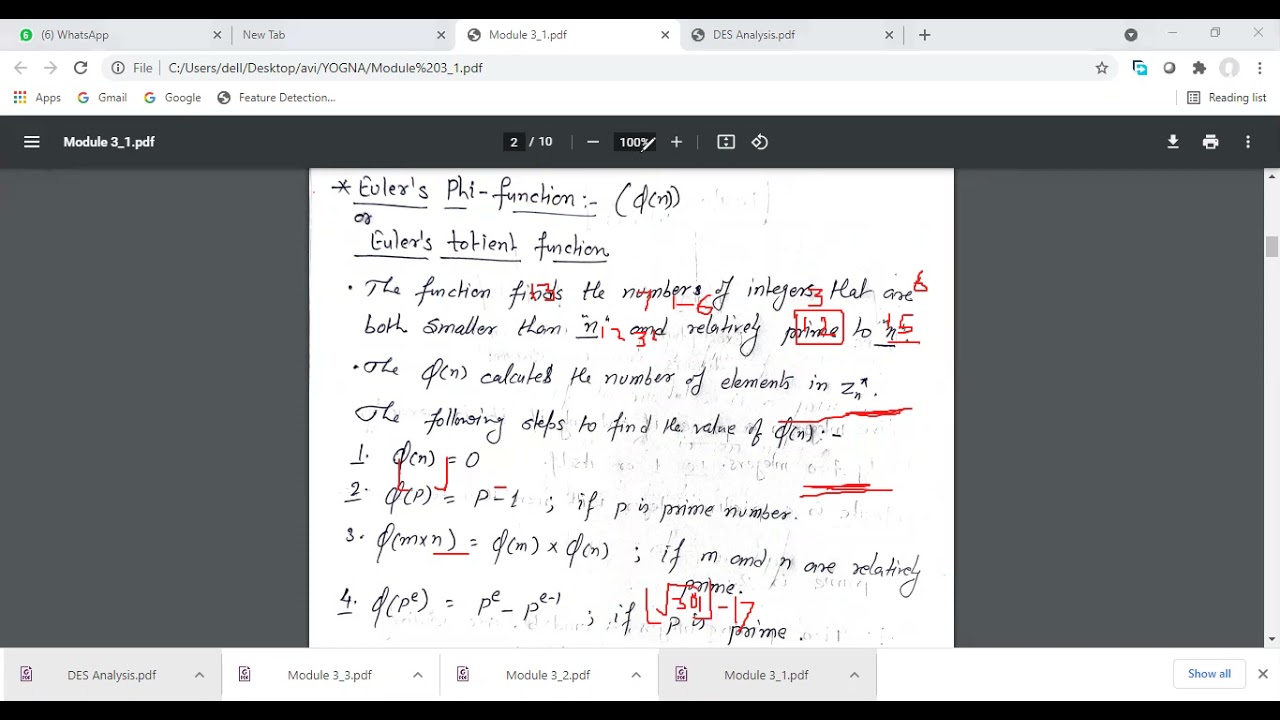 (6) WhatsApp
New Tab
Module 3_1.pdf
DES Analysis.pdf
File
C:/Users/dell/Desktop/avi/YOGNA/Module%203_1.pdf
Apps
Gmail
Google
Feature Detection...
Reading list
Module 3_1.pdf
2 / 10
100%
* Euler's Phi-function :- (φ(n))
or
Euler's totient function
• The function finds the numbers of integers that are
both smaller than "n" and relatively prime to "n".
• The φ(n) calculets the number of elements in Zn*.
The following steps to find the value of φ(n) :-
1. φ(n) = 0
2. φ(p) = p-1 ; if p is prime number.
3. φ(m×n) = φ(m) × φ(n) ; if m and n are relatively
prime.
4. φ(p^e) = p^e - p^e-1 ; if p is prime.
√301 - 17
DES Analysis.pdf
Module 3_3.pdf
Module 3_2.pdf
Module 3_1.pdf
Show all